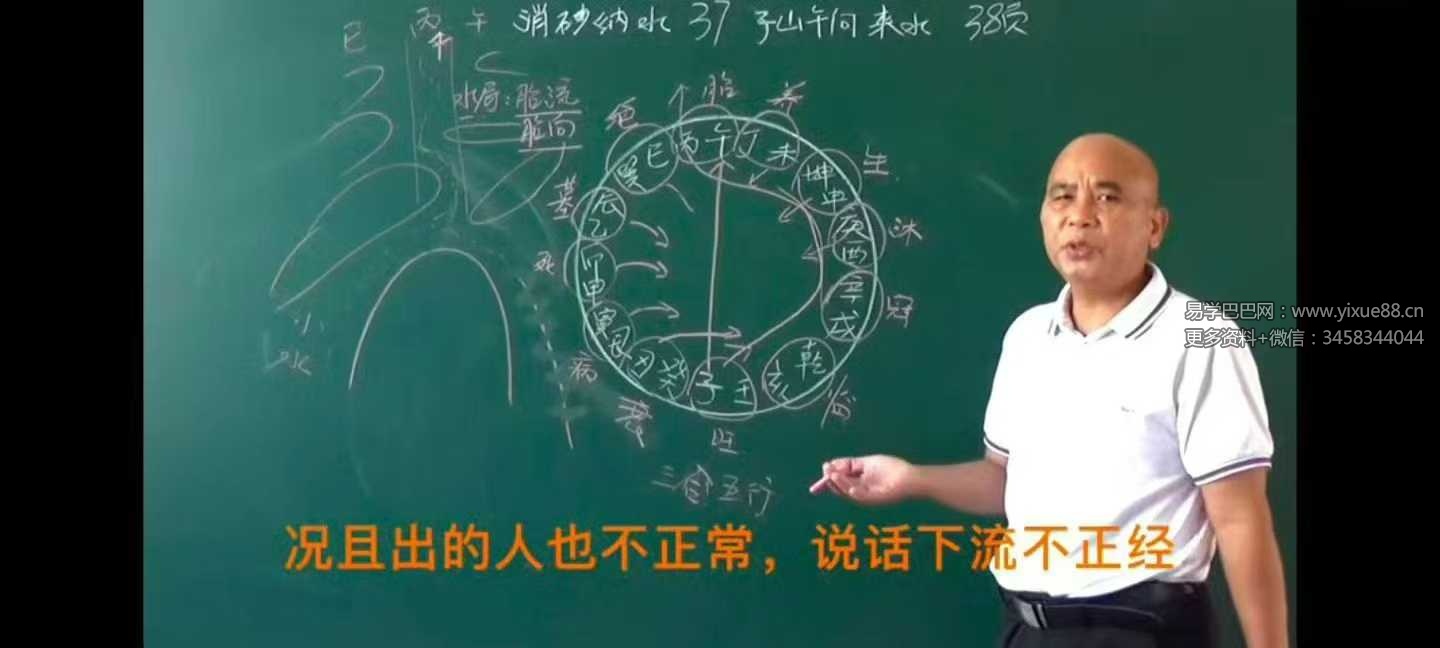 巳 丙 午 消砂纳水 37 子山午向来水 38页
水局：胎流
胎向
绝 胎 养
墓 生
死 沐
病 冠
衰 临
旺
巽 巳 丙 午 丁 未 坤 申
辰 乙 庚 酉
甲 辛 戌
寅 艮 乾 亥
丑 癸 子 壬
水
三合五行
易学巴巴网：www.yixue88.cn
更多资料+微信：3458344044
况且出的人也不正常，说话下流不正经